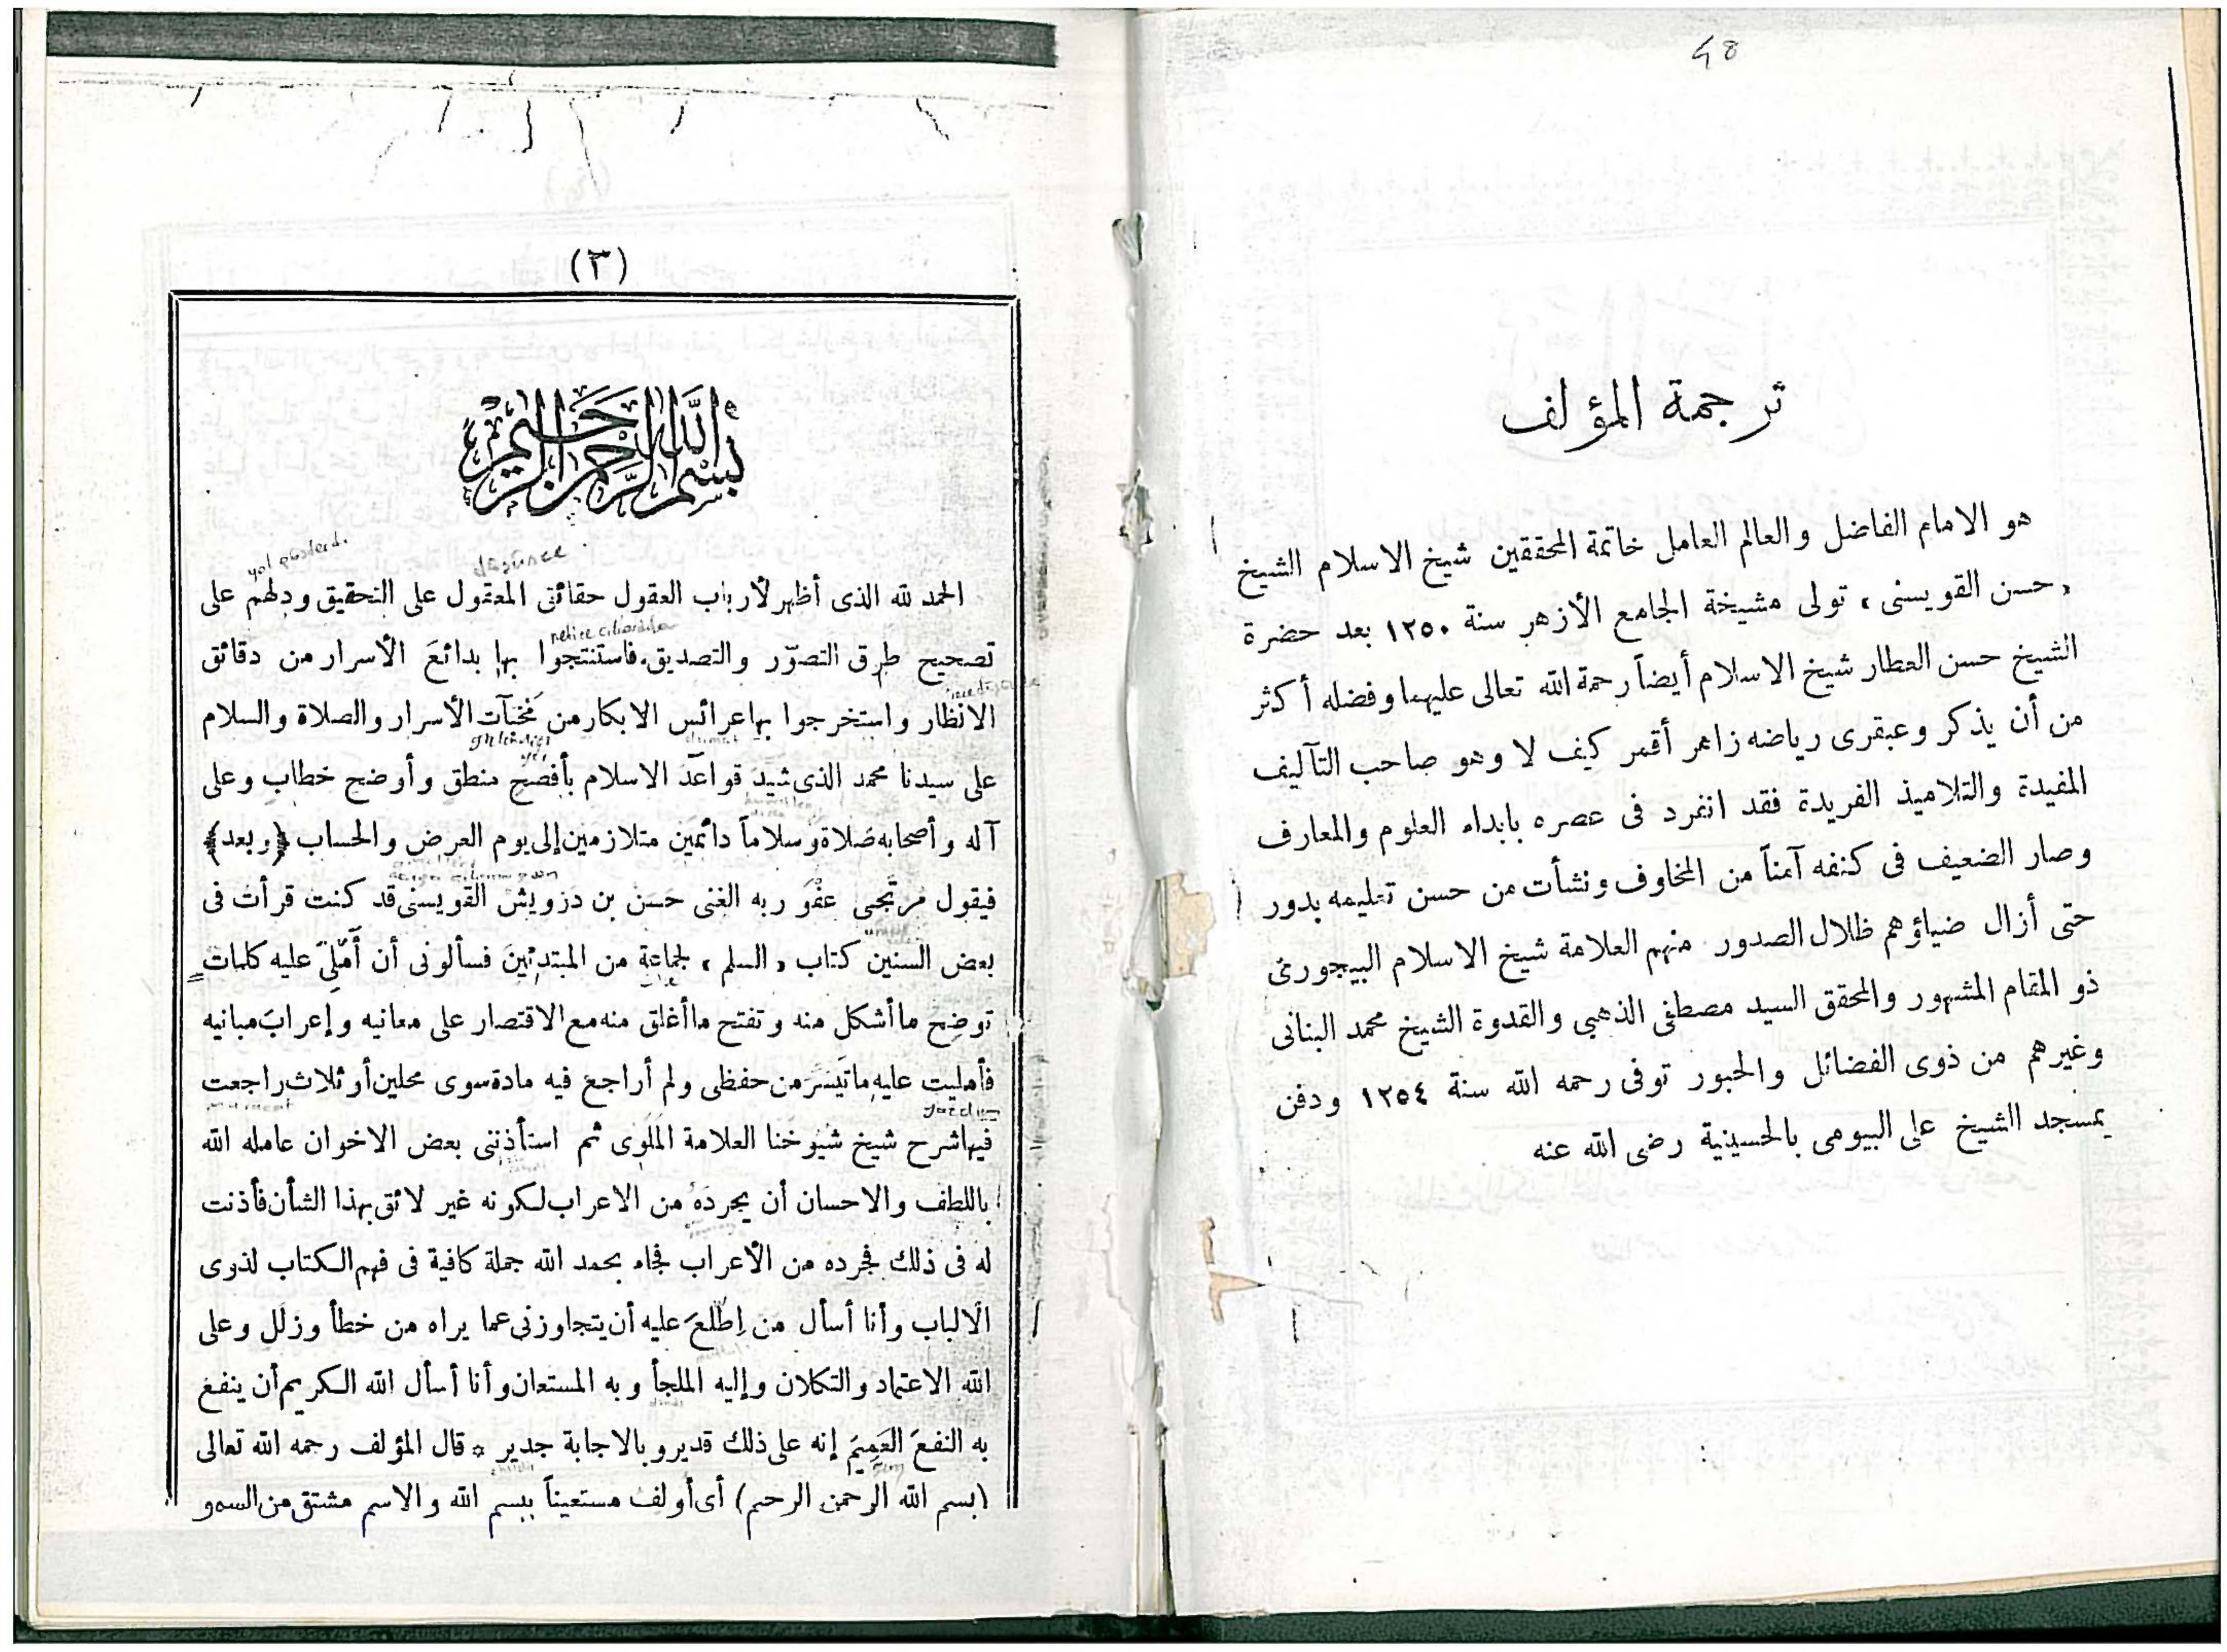 48
ترجمة المؤلف
هو الامام الفاضل والعالم العامل خاتمة المحققين شيخ الاسلام الشيخ
حسن القويسنى ، تولى مشيخة الجامع الأزهر سنة ١٢٥٠ بعد حضرة
الشيخ حسن العطار شيخ الاسلام أيضاً رحمة الله تعالى عليهما وفضله أكثر
من أن يذكر وعبقرى رياضه زاهر أقمر كيف لا وهو صاحب التآليف
المفيدة والتلاميذ الفريدة فقد انفرد فى عصره بابداء العلوم والمعارف
وصار الضعيف فى كنفه آمناً من المخاوف ونشأت من حسن تعليمه بدور
حتى أزال ضياؤهم ظلال الصدور منهم العلامة شيخ الاسلام البيجورى
ذو المقام المشهور والمحقق السيد مصطفى الذهبى والقدوة الشيخ محمد البنانى
وغيرهم من ذوى الفضائل والحبور توفى رحمه الله سنة ١٢٥٤ ودفن
بمسجد الشيخ على البيومى بالحسينية رضى الله عنه
(٣)
بسم الله الرحمن الرحيم
yol gösterd.
düşünce
الحمد لله الذى أظهر لأرباب العقول حقائق المعقول على التحقيق ودلهم على
تصحيح طرق التصوّر والتصديق فاستنتجوا بها بدائعَ الأسرار من دقائق
الانظار واستخرجوا بها عرائس الابكار من مخبآت الأسرار والصلاة والسلام
على سيدنا محمد الذى شيَّدَ قواعدَ الاسلام بأفصح منطق وأوضح خطاب وعلى
آله وأصحابه صلاة وسلاماً دائمين متلازمين إلى يوم العرض والحساب ﴿وبعد﴾
فيقول مرتجى عفو ربه الغنى حسن بن درويش القويسنى قد كنت قرأت فى
بعض السنين كتاب « السلم » لجماعة من المبتدئين فسألونى أن أملى عليه كلمات
توضح ما أشكل منه وتفتح ما أغلق منه مع الاقتصار على معانيه وإعراب مبانيه
فأمليت عليه ما تيسر من حفظى ولم أراجع فيه مادة سوى محلين أو ثلاث راجعت
yazdım
فيها شرح شيخ شيوخنا العلامة الملوى ثم استأذننى بعض الاخوان عامله الله
باللطف والاحسان أن يجردَهُ من الاعراب لكونه غير لائق بهذا الشأن فأذنت
له فى ذلك فجرده من الأعراب فجاء بحمد الله جملة كافية فى فهم الكتاب لذوى
الالباب وأنا أسأل من اِطَّلعَ عليه أن يتجاوزنى عما يراه من خطأ وزلل وعلى
الله الاعتماد والتكلان وإليه الملجأ وبه المستعان وأنا أسأل الله الكريم أن ينفع
به النفعَ العَمِيمَ إنه على ذلك قدير وبالاجابة جدير * قال المؤلف رحمه الله تعالى
(بسم الله الرحمن الرحيم) أى أولف مستعيناً ببسم الله والاسم مشتق من السمو